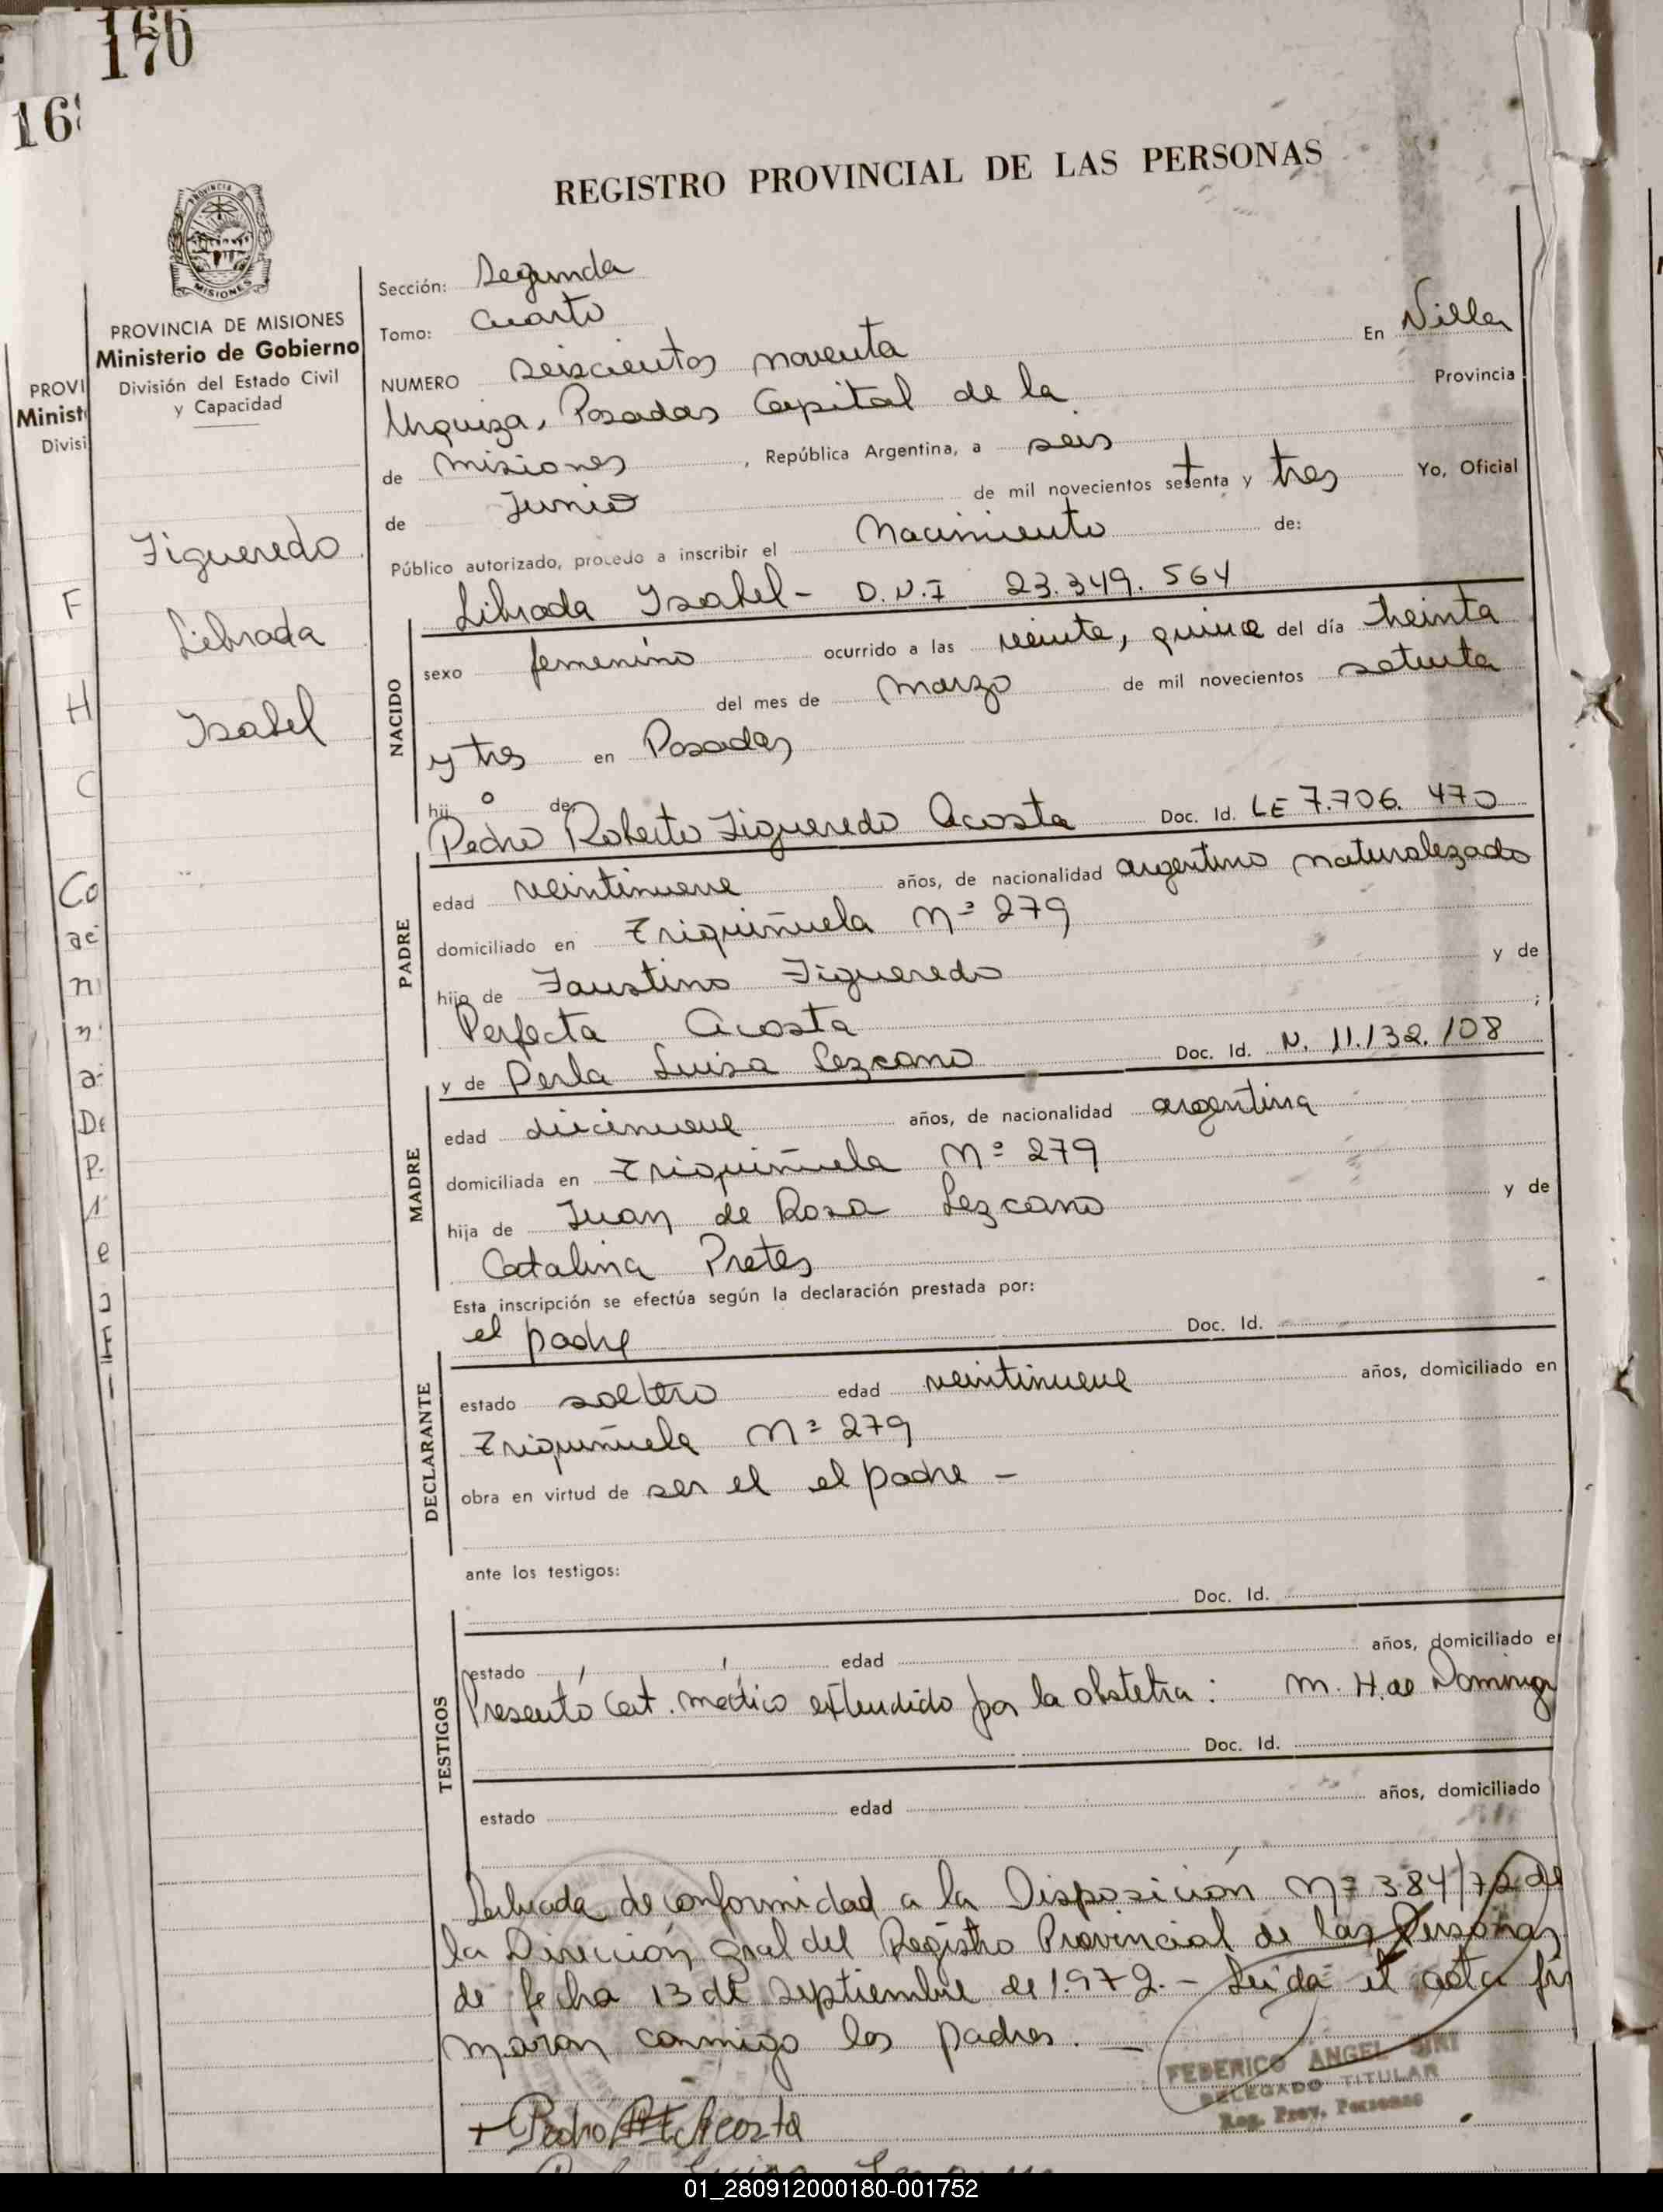 170
168
REGISTRO PROVINCIAL DE LAS PERSONAS
PROVINCIA DE MISIONES
Ministerio de Gobierno
División del Estado Civil
y Capacidad
PROVI
Minist
Divisi
Figueredo
Librada
Isabel
Sección: Segunda
Tomo: Cuarto
NUMERO seiscientos noventa En Villa
Urquiza, Posadas Capital de la Provincia
de Misiones, República Argentina, a seis
de Junio de mil novecientos setenta y tres Yo, Oficial
Público autorizado, procedo a inscribir el Nacimiento de:
Librada Ysabel - D.N.I 23.349.564
NACIDO
sexo femenino ocurrido a las veinte, quince del día treinta
del mes de marzo de mil novecientos setenta
y tres en Posadas
hijo de
Pedro Roberto Figueredo Acosta Doc. Id. LE 7.706.470
PADRE
edad veintinueve años, de nacionalidad argentino naturalezado
domiciliado en Triquiñuela Nº 279
hijo de Faustino Figueredo y de
Perfecta Acosta;
y de Perla Luisa Lezcano Doc. Id. N. 11.132.108
MADRE
edad diecinueve años, de nacionalidad argentina
domiciliada en Triquiñuela Nº 279
hija de Juan de Rosa Lezcano y de
Catalina Pretes
Esta inscripción se efectúa según la declaración prestada por:
el padre Doc. Id.
DECLARANTE
estado soltero edad veintinueve años, domiciliado en
Triquiñuela Nº 279
obra en virtud de ser el el padre -
ante los testigos:
Doc. Id.
TESTIGOS
estado edad años, domiciliado e
Presentó Cert. médico extendido por la obstetra: M. H. de Doming
Doc. Id.
estado edad años, domiciliado
Labrada de conformidad a la Disposición Nº 384/72 de
la Dirección gral del Registro Provincial de las Personas
de fecha 13 de septiembre de 1.972.- Leida el acta fir
maron conmigo los padres. -
FEDERICO ANGEL SIRI
DELEGADO TITULAR
Reg. Prov. Personas
+ Pedro Acosta
01_280912000180-001752